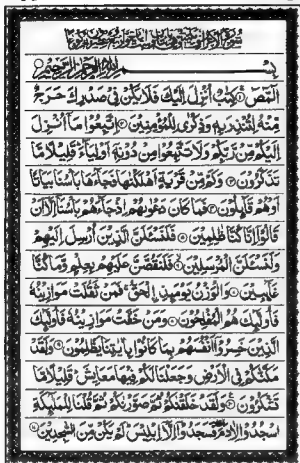 سُورَةُ الْأَعْرَافِ
بِسْمِ اللهِ الرَّحْمٰنِ الرَّحِيْمِ
الٓمّٓصٓ ۝ كِتٰبٌ اُنْزِلَ اِلَيْكَ فَلَا يَكُنْ فِيْ صَدْرِكَ حَرَجٌ
مِّنْهُ لِتُنْذِرَ بِهٖ وَذِكْرٰى لِلْمُؤْمِنِيْنَ ۝ اِتَّبِعُوْا مَآ اُنْزِلَ
اِلَيْكُمْ مِّنْ رَّبِّكُمْ وَلَا تَتَّبِعُوْا مِنْ دُوْنِهٖٓ اَوْلِيَآءَ قَلِيْلًا مَّا
تَذَكَّرُوْنَ ۝ وَكَمْ مِّنْ قَرْيَةٍ اَهْلَكْنٰهَا فَجَآءَهَا بَاْسُنَا بَيَاتًا
اَوْ هُمْ قَآئِلُوْنَ ۝ فَمَا كَانَ دَعْوٰىهُمْ اِذْ جَآءَهُمْ بَاْسُنَآ اِلَّآ اَنْ
قَالُوْٓا اِنَّا كُنَّا ظٰلِمِيْنَ ۝ فَلَنَسْـَٔلَنَّ الَّذِيْنَ اُرْسِلَ اِلَيْهِمْ
وَلَنَسْـَٔلَنَّ الْمُرْسَلِيْنَ ۝ فَلَنَقُصَّنَّ عَلَيْهِمْ بِعِلْمٍ وَّمَا كُنَّا
غَآئِبِيْنَ ۝ وَالْوَزْنُ يَوْمَئِذِ ِۨالْحَقُّ فَمَنْ ثَقُلَتْ مَوَازِيْنُهٗ
فَاُولٰٓئِكَ هُمُ الْمُفْلِحُوْنَ ۝ وَمَنْ خَفَّتْ مَوَازِيْنُهٗ فَاُولٰٓئِكَ
الَّذِيْنَ خَسِرُوْٓا اَنْفُسَهُمْ بِمَا كَانُوْا بِاٰيٰتِنَا يَظْلِمُوْنَ ۝ وَلَقَدْ
مَكَّنّٰكُمْ فِي الْاَرْضِ وَجَعَلْنَا لَكُمْ فِيْهَا مَعَايِشَ قَلِيْلًا مَّا
تَشْكُرُوْنَ ۝ وَلَقَدْ خَلَقْنٰكُمْ ثُمَّ صَوَّرْنٰكُمْ ثُمَّ قُلْنَا لِلْمَلٰٓئِكَةِ
اسْجُدُوْا لِاٰدَمَ فَسَجَدُوْٓا اِلَّآ اِبْلِيْسَ لَمْ يَكُنْ مِّنَ السّٰجِدِيْنَ